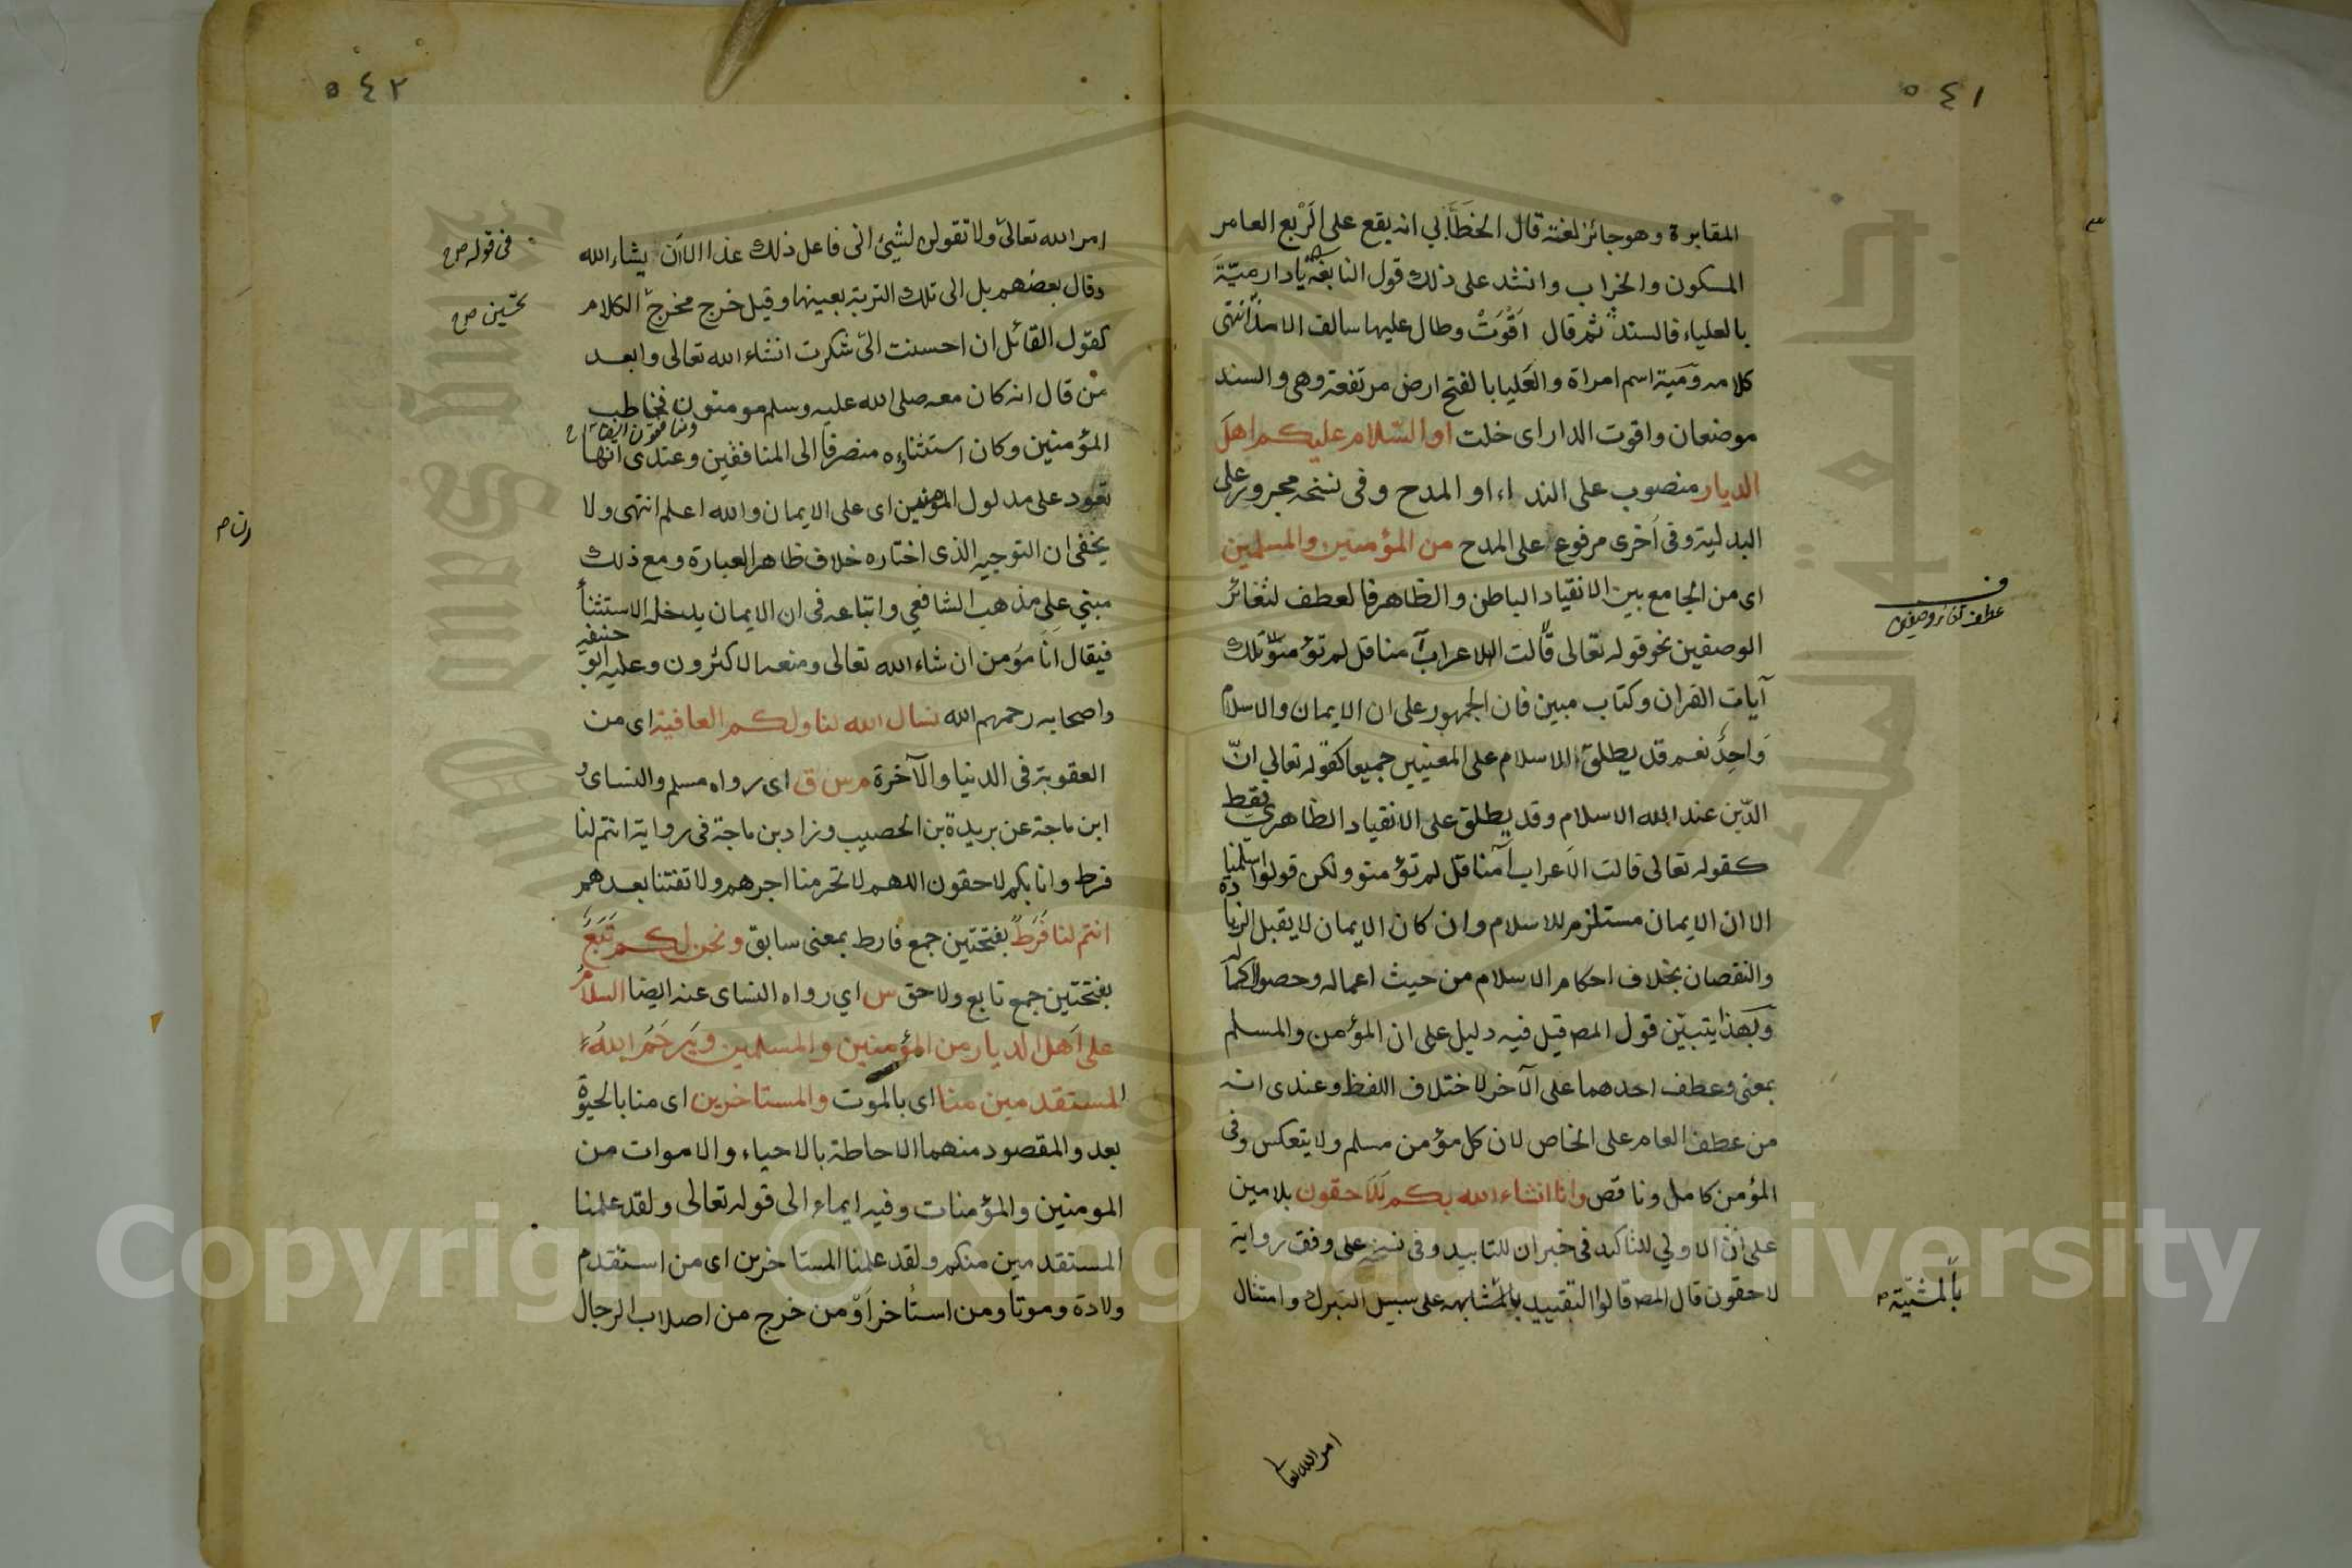 ٥٤١
المقابرة وهو جائز لغة قال الخطّابي انه يقع على الرَبع العامر
المسكون والخراب وانشد على ذلك قول النابغة يا دار ميّةَ
بالعلياء فالسند ثم قال اَقْوَتْ وطال عليها سالف الامد انتهى
كلامه ومَية اسم امراة والعَليا بالفتح ارض مرتفعة وهى والسند
موضعان واقوت الدار اى خلت او السّلام عليكم اهلَ
الديار منصوب على النداء او المدح وفى نسخه مجرور على
البدلية وفى اُخرى مرفوع على المدح من المؤمنين والمسلمين
اى من الجامع بين الانقياد الباطن والظاهر فالعطف لتغائر
الوصفين نحو قوله تعالى تلك
عطف تغائر وصفين
آيات القران وكتاب مبين فان الجمهور على ان الايمان والاسلام
وَاحِدٌ نعم قد يطلق الاسلام على المعنيين جميعا كقوله تعالي انّ
الدّين عند الله الاسلام وقد يطلق على الانقياد الظاهري فقط
كقوله تعالى قالت الاَعراب آمنا قل لم تؤمنو ولكن قولوا اسلمنا
الا ان الايمان مستلزم للاسلام وان كان الايمان لا يقبل الزيادة
والنقصان بخلاف احكام الاسلام من حيث اعماله وحصول كماله
وبهذا يتبيّن قول المص قيل فيه دليل على ان المؤمن والمسلم
بمعنى وعطف احدهما على الآخر لاختلاف اللفظ وعندى انه
من عطف العام على الخاص لان كل مؤمن مسلم ولا ينعكس وفى
المؤمن كامل وناقص وانا انشاء الله بكم لَلَاحقون بلامين
على انّ الاولي للتاكيد فى خبر ان للتابيد وفى نسخه على وفق رواية
لاحقون قال المص قالوا التقييد على سبيل التبرك وامتثال
بالمشيّة
امر الله تعالى
٥٤٢
امر الله تعالى ولا تقولن لشيئ انى فاعل ذلك غدا الا اَن يشاء الله
فى قوله
وقال بعضهم بل الى تلك التربة بعينها وقيل خرج مخرج الكلام
تحسين
كقول القائل ان احسنت اليّ شكرت انشاء الله تعالى وابعد
من قال انه كان معه صلى الله عليه وسلم مومنون فخاطب
ومنافقون
المؤمنين وكان استثناؤه منصرفا الى المنافقين وعندى انها
تعود على مدلول المؤمنين اى على الايمان والله اعلم انتهى ولا
يخفى ان التوجيه الذى اختاره خلاف ظاهر العبارة ومع ذلك
مبني على مذهب الشافعي واتباعه فى ان الايمان يدخله الاستثنأ
فيقال اَنا مؤمن ان شاء الله تعالى ومنعه الاكثرون وعليه ابو حنيفه
واصحابه رحمهم الله نسال الله لنا ولكم العافية اى من
العقوبة فى الدنيا والآخرة م س ق اى رواه مسلم والنساى و
ابن ماجة عن بريدة بن الحصيب وزاد بن ماجة فى رواية انتم لنا
فرط وانا بكم لاحقون اللهم لا تحرمنا اجرهم ولا تفتنا بعدهم
انتم لنا فَرَطٌ بفتحتين جمع فارط بمعنى سابق ونحن لكم تَبَعٌ
بفتحتين جمع تابع ولاحق س اي رواه النساى عنه ايضا السلامُ
على اَهل الديار من المؤمنين والمسلمين ويَرحَمُ اللهُ
المستقدمين منا اى بالموت والمستاخرين اى منا بالحيوة
بعد والمقصود منهما الاحاطة بالاحياء والاموات من
المومنين والمؤمنات وفيه ايماء الى قوله تعالى ولقد علمنا
المستقدمين منكم ولقد علمنا المستاخرين اى من استقدم
ولادة وموتا ومن استأخر اَوْ من خرج من اصلاب الرجال
Copyright © King Saud University